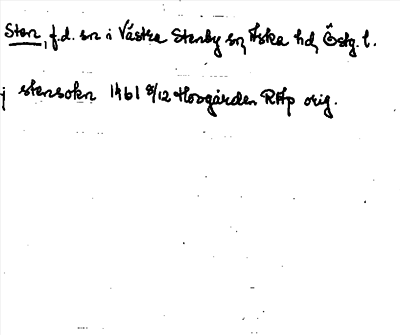 Sten, f.d. sn i Västra Stenby sn, Aska hd, Östg. l.
j stensokn 1461 8/12 Hovgården RAp orig.